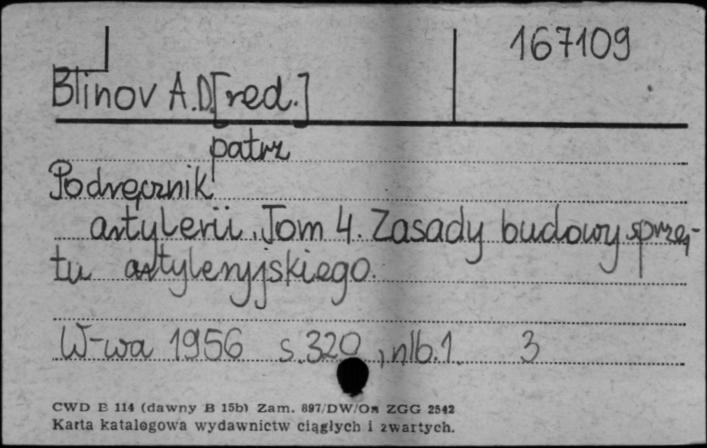 167109
Blinov A.D.[red.]
patrz
Podręcznik
artylerii. Tom 4. Zasady budowy sprzę-
tu artyleryjskiego.
W-wa 1956 s. 320, nlb. 1. 3
CWD E 114 (dawny B 15b) Zam. 897/DW/On ZGG 2542
Karta katalogowa wydawnictw ciągłych i zwartych.